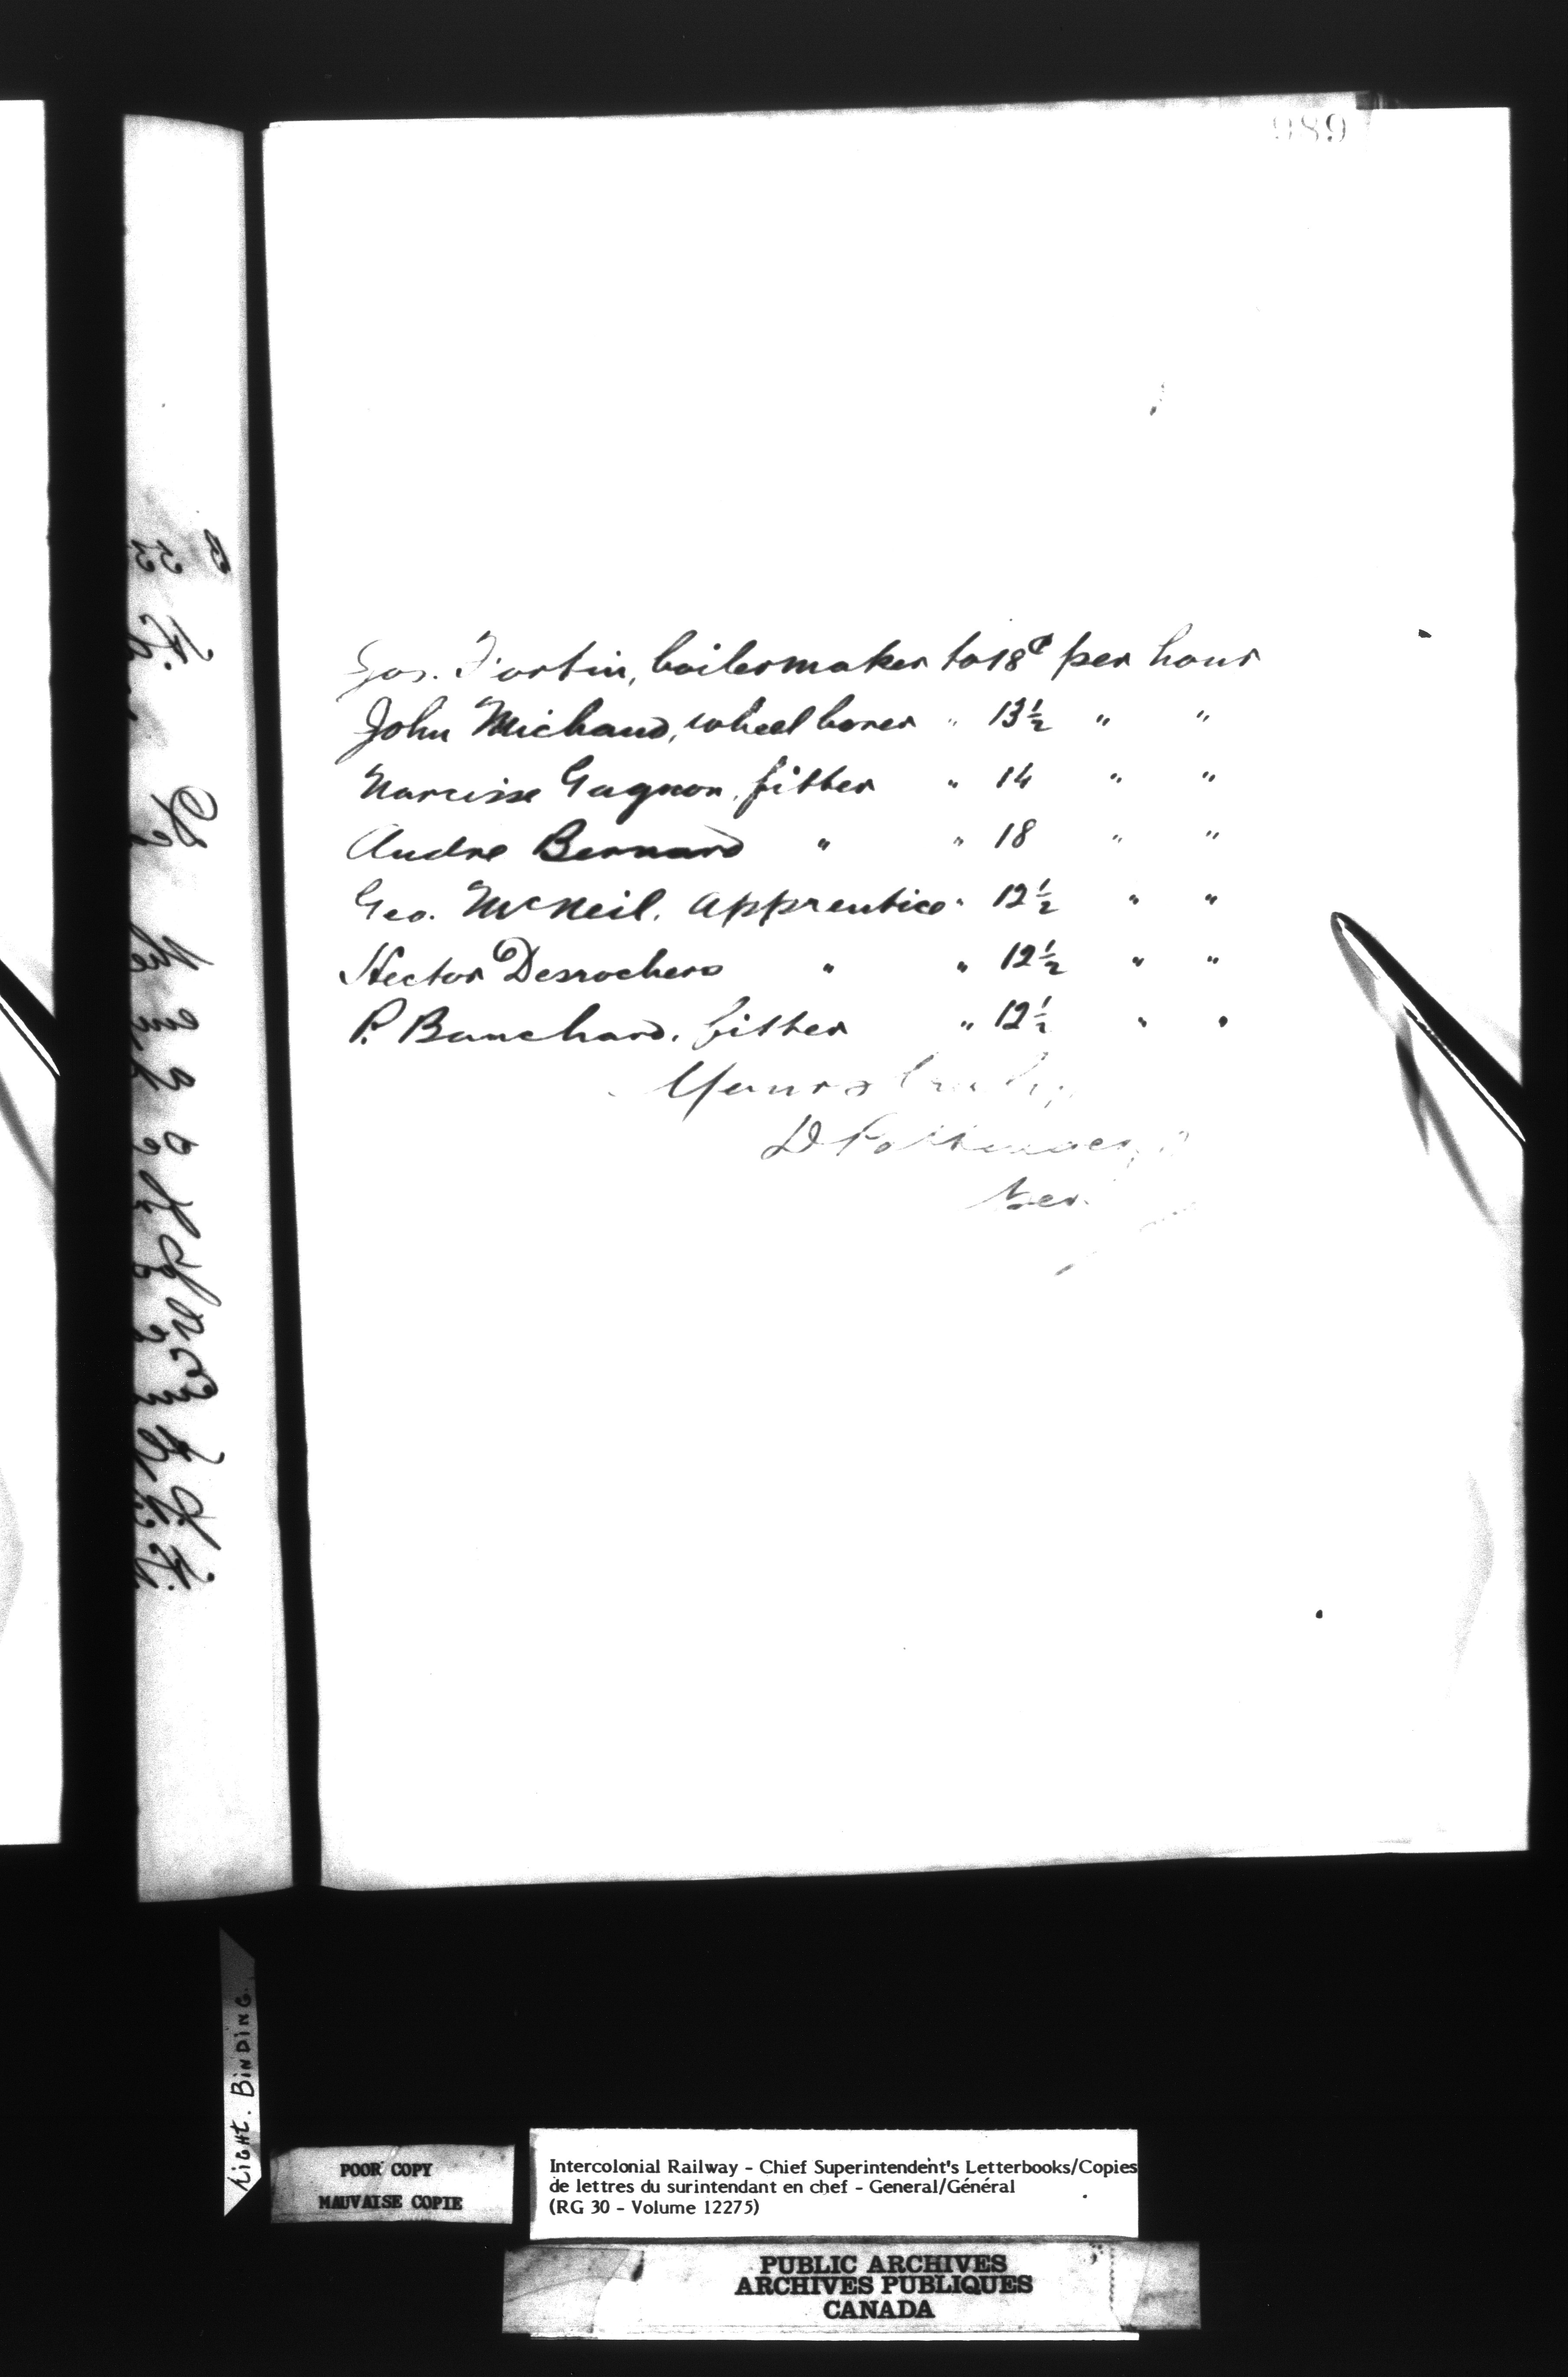 989
Jos. Fortin, boilermaker to 18¢ per hour
John Michaud, wheel borer " 13½ " "
Narcisse Gagnon, fitter " 14 " "
Andre Bernard " " 18 " "
Geo. McNeil, Apprentice " 12½ " "
Hector Desrochers " " 12½ " "
P. Banchard, fitter " 12½ " "
Yours truly,
D Pottinger
TIGHT. BINDING.
POOR COPY
MAUVAISE COPIE
Intercolonial Railway - Chief Superintendent's Letterbooks/Copies
de lettres du surintendant en chef - General/Général
(RG 30 - Volume 12275)
PUBLIC ARCHIVES
ARCHIVES PUBLIQUES
CANADA